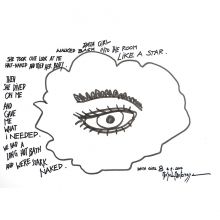 BATH GIRL
WALKED BACK INTO THE ROOM
LIKE A STAR.
SHE TOOK ONE LOOK AT ME
HALF-NAKED AND
THEN
SHE DIVED
ON ME
AND
GAVE
ME
WHAT
I NEEDED.
WE HAD A
LONG HOT BATH
AND WERE STARK
NAKED.
BATH GIRL